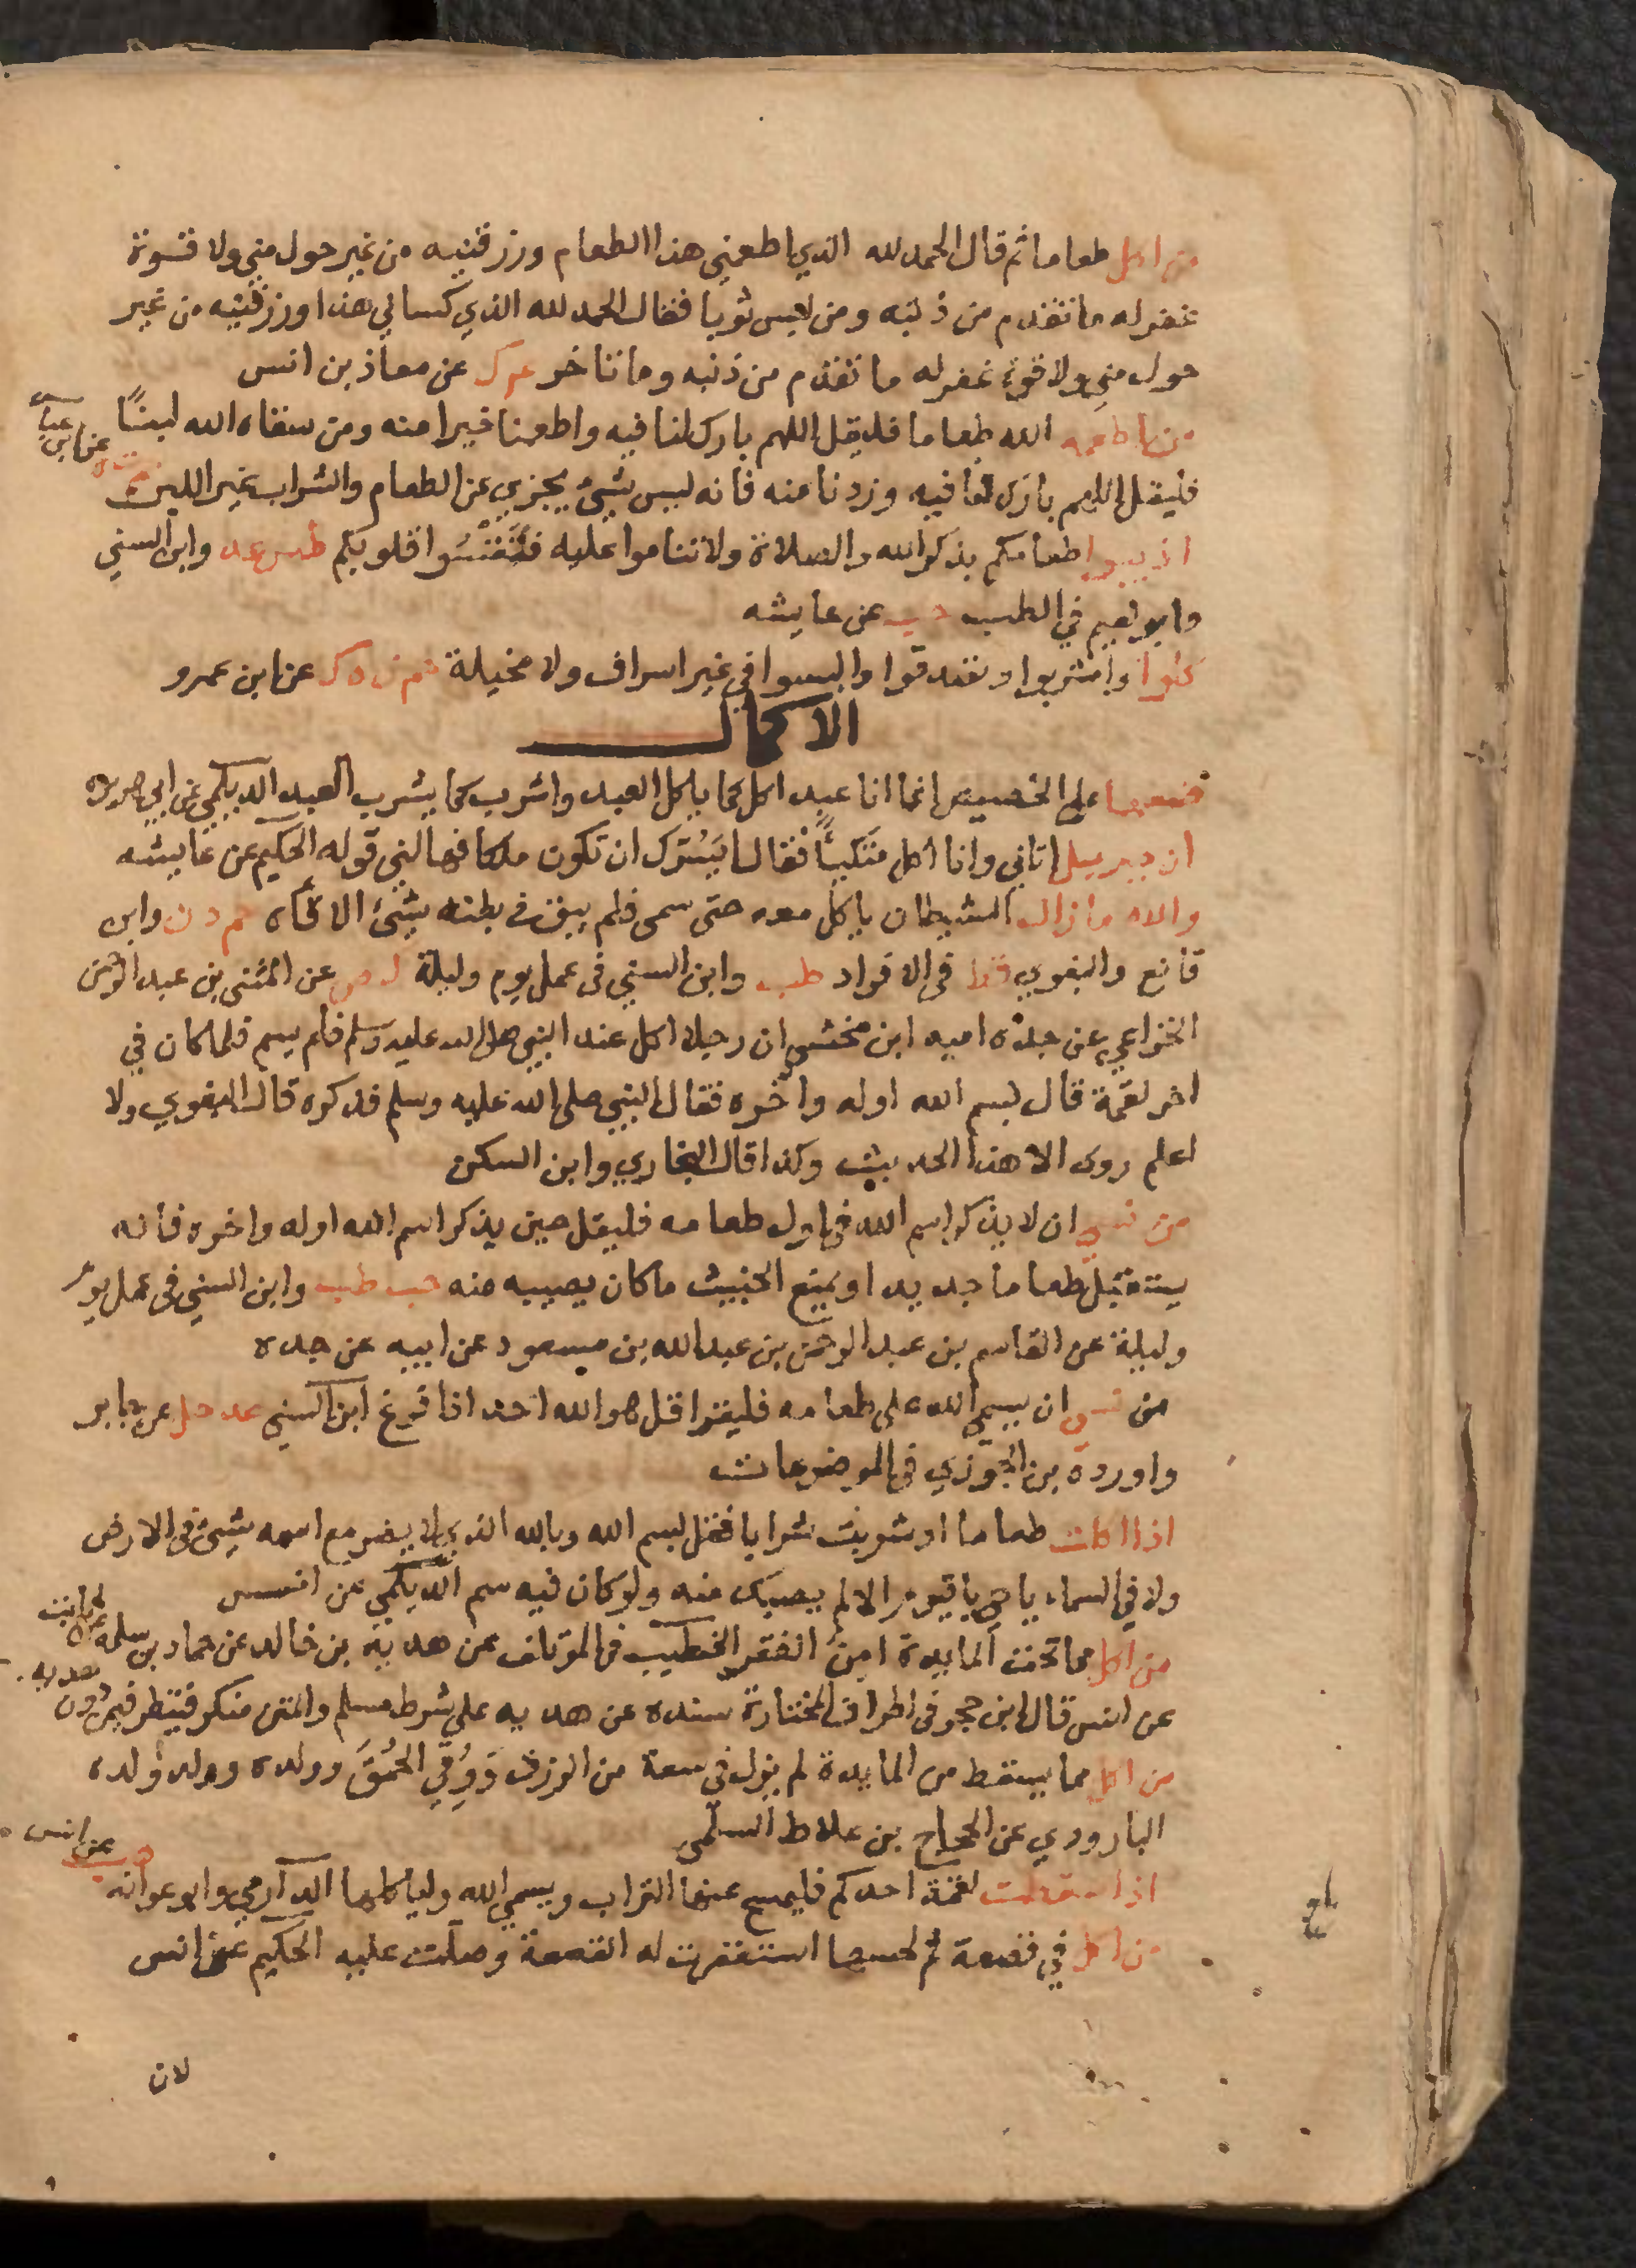 من اكل طعاما ثم قال الحمد لله الذي اطعمني هذا الطعام ورزقنيه من غير حول مني ولا قسوة
غفر له ما تقدم من ذنبه ومن لبس ثوبا فقال الحمد لله الذي كساني هذا ورزقنيه من غير
حول مني ولا قوة غفر له ما تقدم من ذنبه وما تاخر عن معاذ بن انس
من اطعمه الله طعاما فليقل اللهم بارك لنا فيه واطعمنا خيرا منه ومن سقاه الله لبنًا
فليقل اللهم بارك لنا فيه وزدنا منه فانه ليس شيئ يجزي عن الطعام والشراب غير اللبن
عن ابن عباس
اذيبوا طعامكم بذكر الله والصلاة ولا تناموا عليه فتقسُوا قلوبكم طس عد وابن السني
وابو نعيم في الطب هب عن عايشه
كلوا واشربوا وتصدقوا والبسوا في غير اسراف ولا مخيلة حم ن ه ك عن ابن عمرو
الاكمال
ضعها على الحضيض انما انا عبد اكل كما ياكل العبد واشرب كما يشرب العبد الديلمي عن ابي هريرة
ان جبريل اتاني وانا اكل متكيًا فقال ايسُرك ان تكون ملكا فهالني قوله الحكيم عن عايشه
والله ما زال الشيطان ياكل معه حتى سمى فلم يبق في بطنه شيئ الا قاه حم د ن وابن
قانع والبغوي قط في الافراد طب وابن السني في عمل يوم وليلة ك ص عن المثنى بن عبد الرحمن
الخزاعي عن جده اميه ابن مخشي ان رجلا اكل عند النبي صلى الله عليه وسلم فلم يسم فلما كان في
اخر لقمة قال بسم الله اوله واخره فقال النبي صلى الله عليه وسلم فذكره قال البغوي ولا
اعلم روى الا هذا الحديث وكذا قال البخاري وابن السكن
من نسي ان لا يذكر اسم الله في اول طعامه فليقل حين يذكر اسم الله اوله واخره فانه
يستقبل طعاما جديدا ويمنع الخبيث ما كان يصيبه منه حب طب وابن السني في عمل يوم
وليلة عن القاسم بن عبد الرحمن بن عبد الله بن مسعود عن ابيه عن جده
من نسي ان يسمي الله على طعامه فليقرا قل هو الله احد اذا فرغ ابن السني عد حل عن جابر
واورده بن الجوزي في الموضوعات
اذا اكلت طعاما او شربت شرابا فقل بسم الله وبالله الذي لا يضر مع اسمه شيئ في الارض
ولا في السماء يا حي يا قيوم الا لم يصبك منه ولو كان فيه سم الديلمي عن انس
من اكل مما تحت المايدة امِنَ الفقر الخطيب في المؤتلف عن هدبة بن خالد عن حماد بن سلمه عن ثابت
عن انس قال ابن حجر في اطراف المختارة سنده عن هدبه على شرط مسلم والمتن منكر فينظر فيمن دون
هدبه
من اكل مما يسقط من المايدة لم يزل في سعة من الرزق وَوُقِيَ الحُمُقَ وولده وولد ولده
الباروردي عن الحجاج بن علاط السلمي
اذا سقطت لقمة احدكم فليمسح عنها التراب ويسمي الله ولياكلها الدارمي وابو عوانه
حب عن انس
من اكل في قصعة ثم لحسها استغفرت له القصعة وصلت عليه الحكيم عن انس
لان